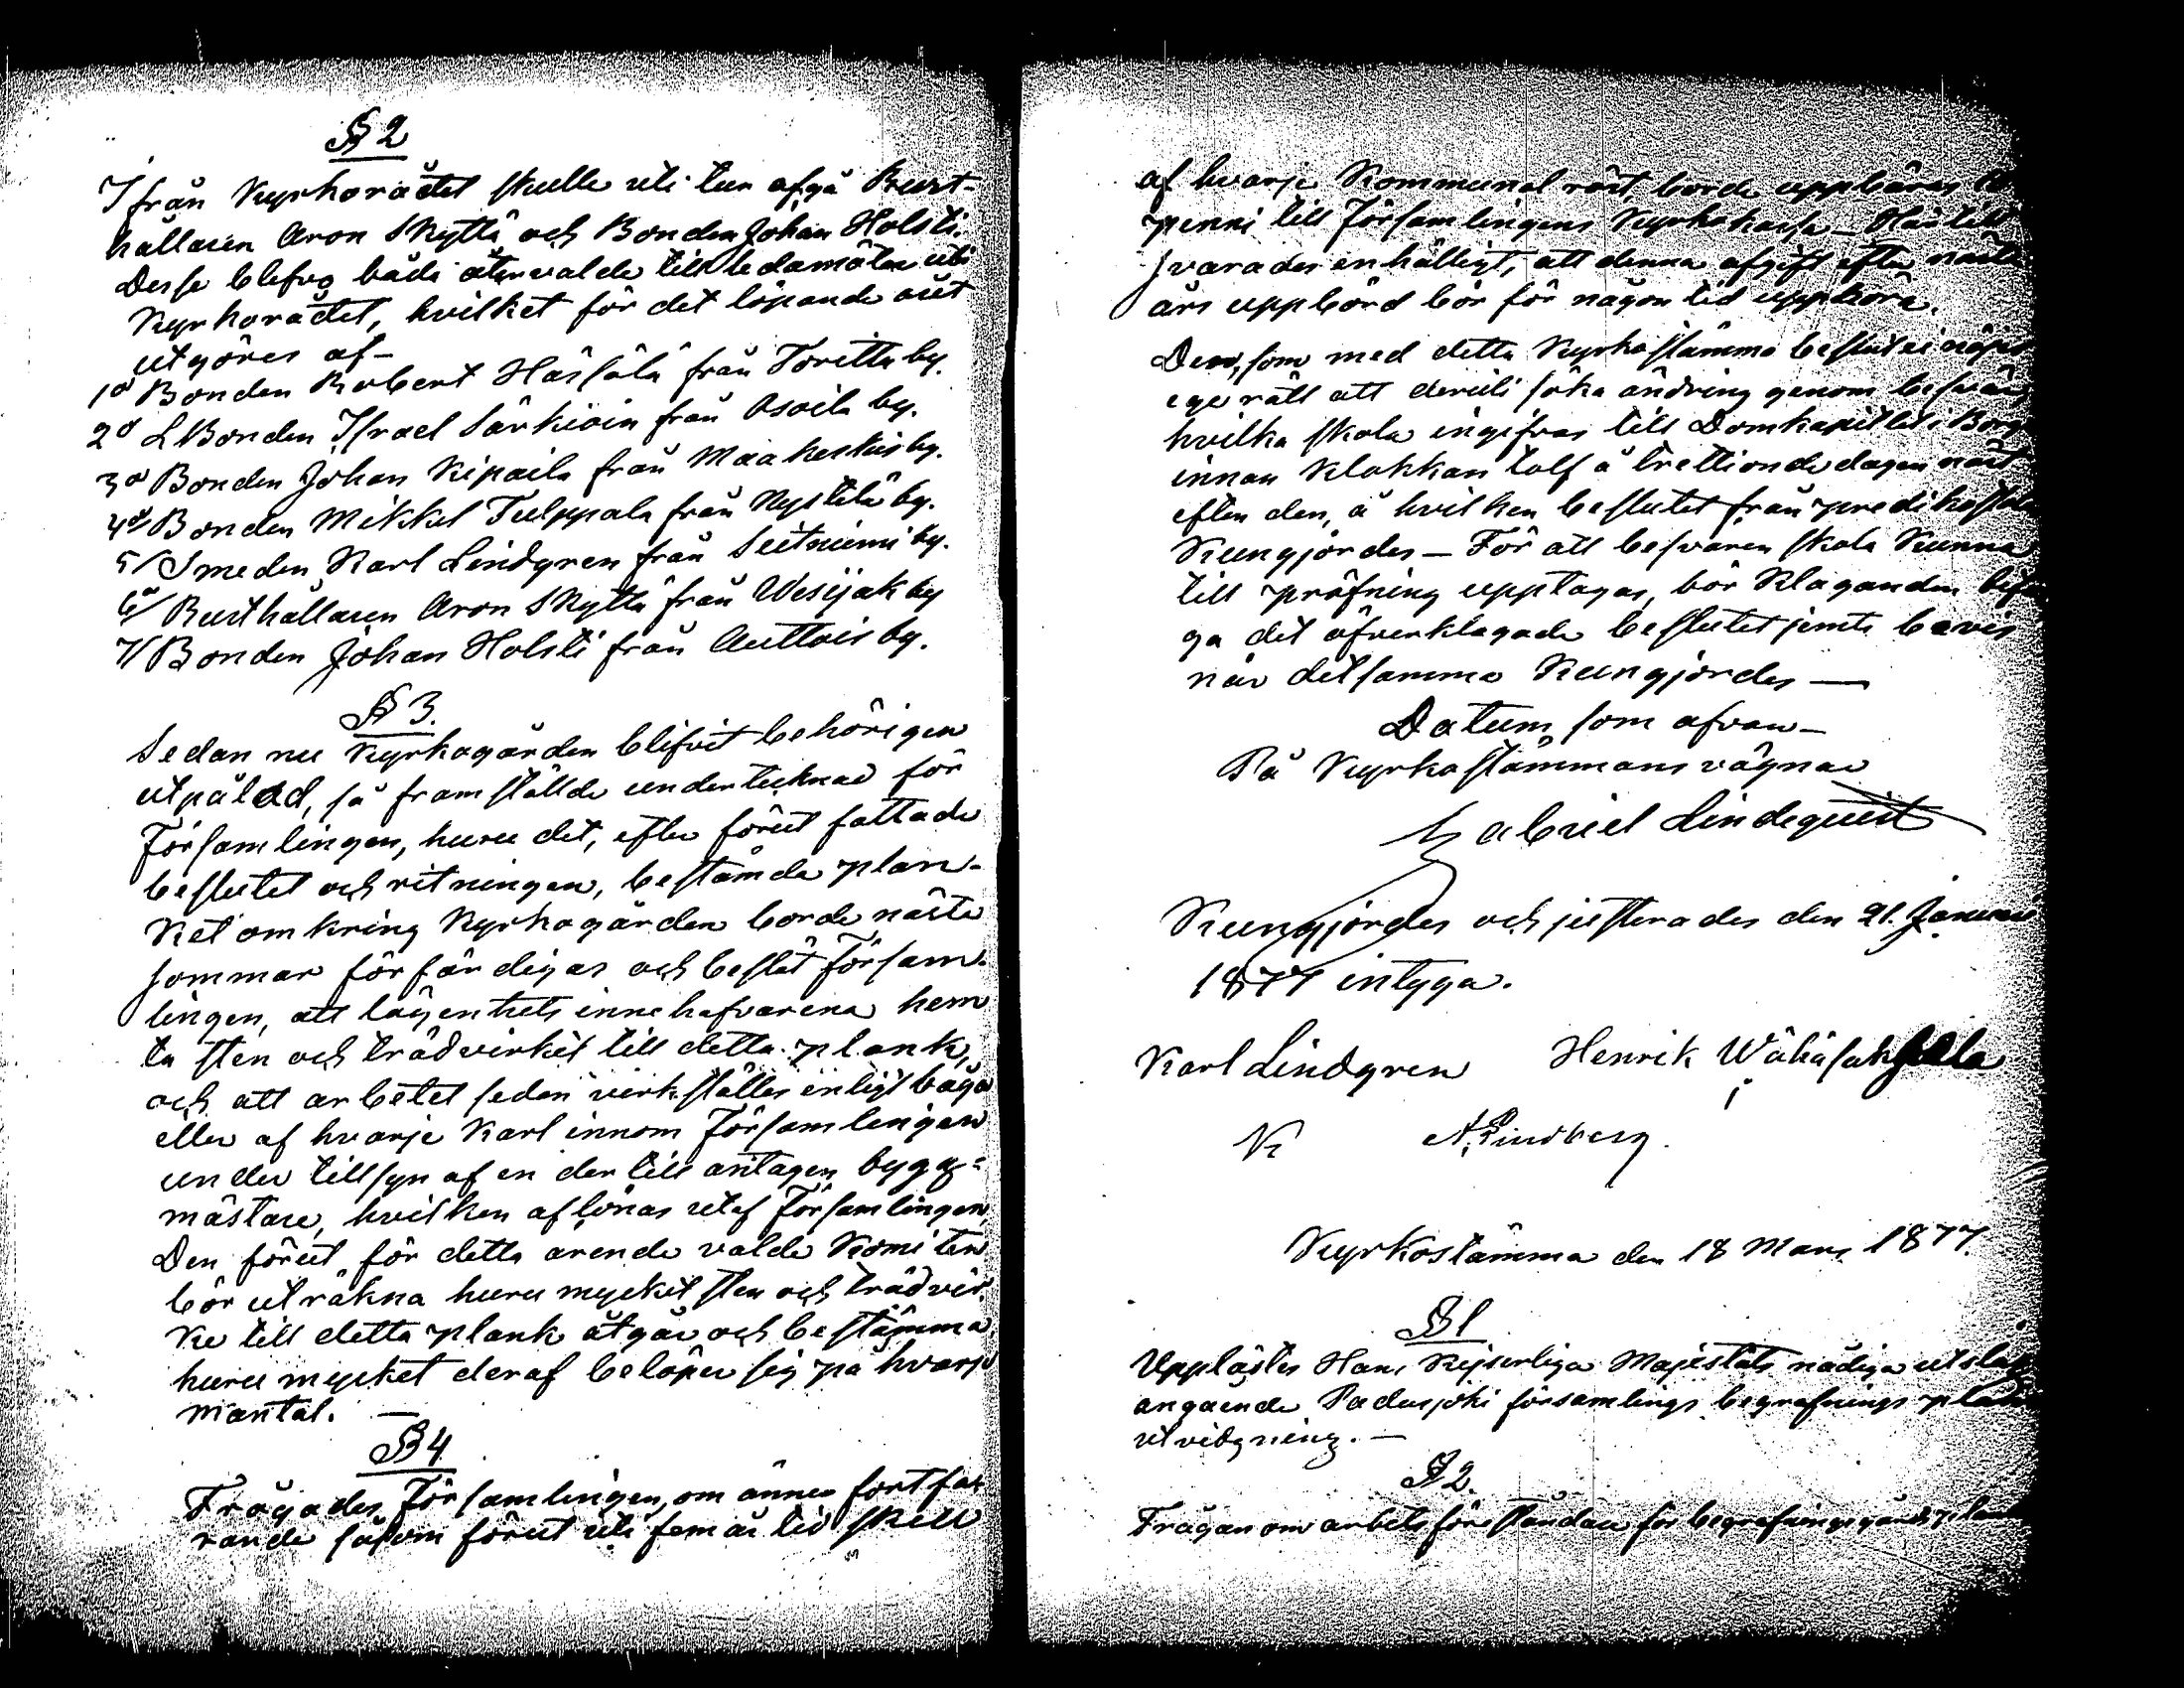 § 2
Ifrån Kyrkorådet skulle uti tur afgå Rust-
hållaren Aron Skyttä och Bonden Johan Holsti.
Desse blefvo både återvalde till ledamöter uti
Kyrkorådet, hvilket för det löpande året
utgöres af-
1o Bonden Robert Hässälä från Toritta by.
2o LBonden Israel Särkiöin från Osoila by.
3o Bonden Johan Kipaila från Maakeskis by.
4o Bonden Mikkel Tulppala från Nystölä by.
5/ Smeden Karl Lindgren från Seitniemi by.
6/ Rusthållaren Aron Skyttä från Wesijak by
7/ Bonden Johan Holsti från Auttois by.
§ 3.
Sedan nu Kyrkogården blifvit behörigen
utpålad, så framställde undertecknad för
Församlingen, huru det, efter förut fattade
beslutet och ritningen, bestämda plan-
ket omkring Kyrkogården borde nästa
sommar förfärdigas och beslöt Försam-
lingen, att lägenhets innehafvarena hem
ta sten och trädvirket till detta plank,
och att arbetet sedan verkställes enligt båga
eller af hvarje Karl innom Församlingen
under tillsyn af en der till antagen bygg-
mästare, hvilken aflönas utaf Församlingen,
Den förut för detta ärende valde Komiten
bör uträkna huru mycket sten och trädvir-
ke till detta plank åtgår och bestämma,
huru mycket deraf belöper sig på hvarje
mantal. —
§ 4
Frågades Församlingen, om ännu fortfa-
rande såsom förut uti fem år tid skull
af hvarje Kommunal röst, borde uppbäras
penni till Församlingens Kyrkokassa — Härtill
svarades enhälligt, att denna afgift efter nästa
års uppbörd bör för någon tid upphöra.
Den, som med detta Kyrkostämmo beslut ei nöjes
ege rätt att deruti söka ändring genom besvär,
hvilka skola ingifvas till Domkapitlet i Borg
innan Klokkan tolf å trettionde dagen näst
efter den, å hvilken beslutet från predikostolen
Kungjordes — För att besvären skola Kunna
till pröfning upptagas, bör Klaganden bifo
ga det öfverklagade beslutet jemte bevis
när detsamma Kungjordes —
Datum som ofvan —
På Kyrkostämmans vägnar
Gabriel Lindequist
Kungjordes och justerades den 21. Januari
1877 intyga.
Karl Lindgren Henrik
K A. Lindberg.
Kyrkostämma den 18 Mars 1877.
§ 1
Upplästes Hans Kejserliga Majestäts nådiga utslag
angående Padasjoki församlings begrafnings plats
utvidgning. —
§ 2.
Frågan om arbets föreståndare för begrafningsgårds plank